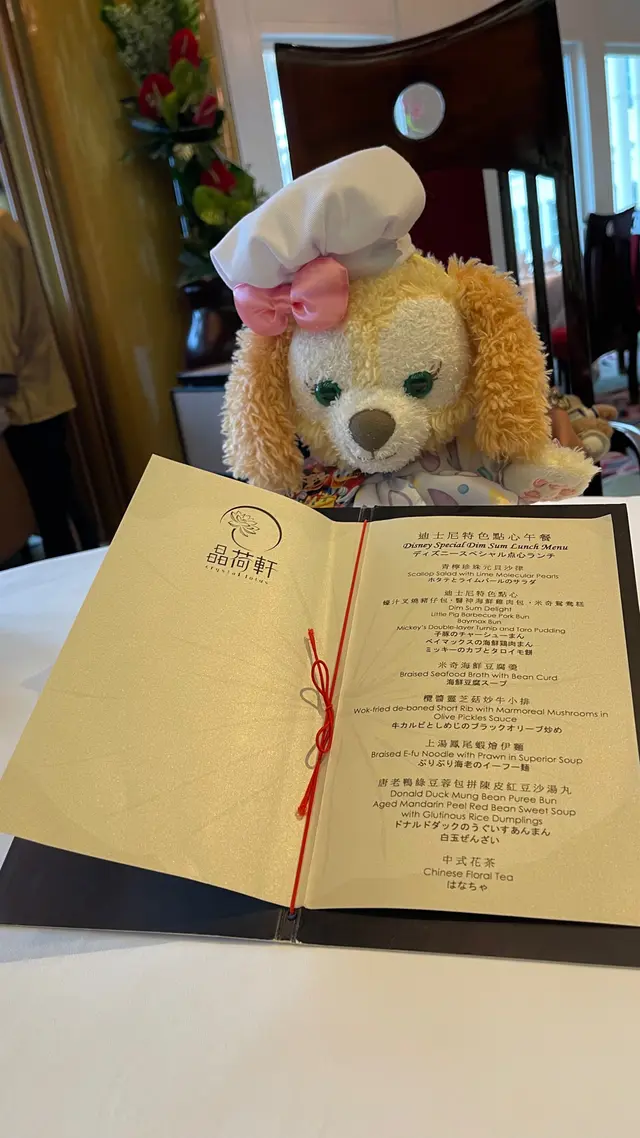 晶荷軒
crystal lotus
迪士尼特色點心午餐
Disney Special Dim Sum Lunch Menu
ディズニースペシャル点心ランチ
青檸珍珠元貝沙律
Scallop Salad with Lime Molecular Pearls
ホタテとライムパールのサラダ
迪士尼特色點心
蠔汁叉燒豬仔包‧醫神海鮮雞肉包‧米奇鴛鴦糕
Dim Sum Delight
Little Pig Barbecue Pork Bun
Baymax Bun
Mickey's Double-layer Turnip and Taro Pudding
子豚のチャーシューまん
ベイマックスの海鮮鶏肉まん
ミッキーのカブとタロイモ餅
米奇海鮮豆腐羹
Braised Seafood Broth with Bean Curd
海鮮豆腐スープ
欖醬靈芝菇炒牛小排
Wok-fried de-boned Short Rib with Marmoreal Mushrooms in
Olive Pickles Sauce
牛カルビとしめじのブラックオリーブ炒め
上湯鳳尾蝦燴伊麵
Braised E-fu Noodle with Prawn in Superior Soup
ぷりぷり海老のイーフー麺
唐老鴨綠豆蓉包拼陳皮紅豆沙湯丸
Donald Duck Mung Bean Puree Bun
Aged Mandarin Peel Red Bean Sweet Soup
with Glutinous Rice Dumplings
ドナルドダックのうぐいすあんまん
白玉ぜんざい
中式花茶
Chinese Floral Tea
はなちゃ